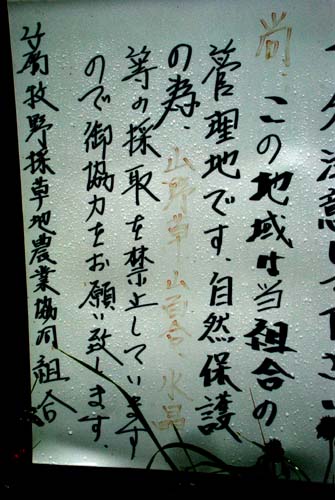 尚、この地域は当組合の
管理地です、自然保護
の為、山野草、山百合、水晶
等の採取を禁止しています
ので御協力をお願い致します、
牧野採草地農業協同組合